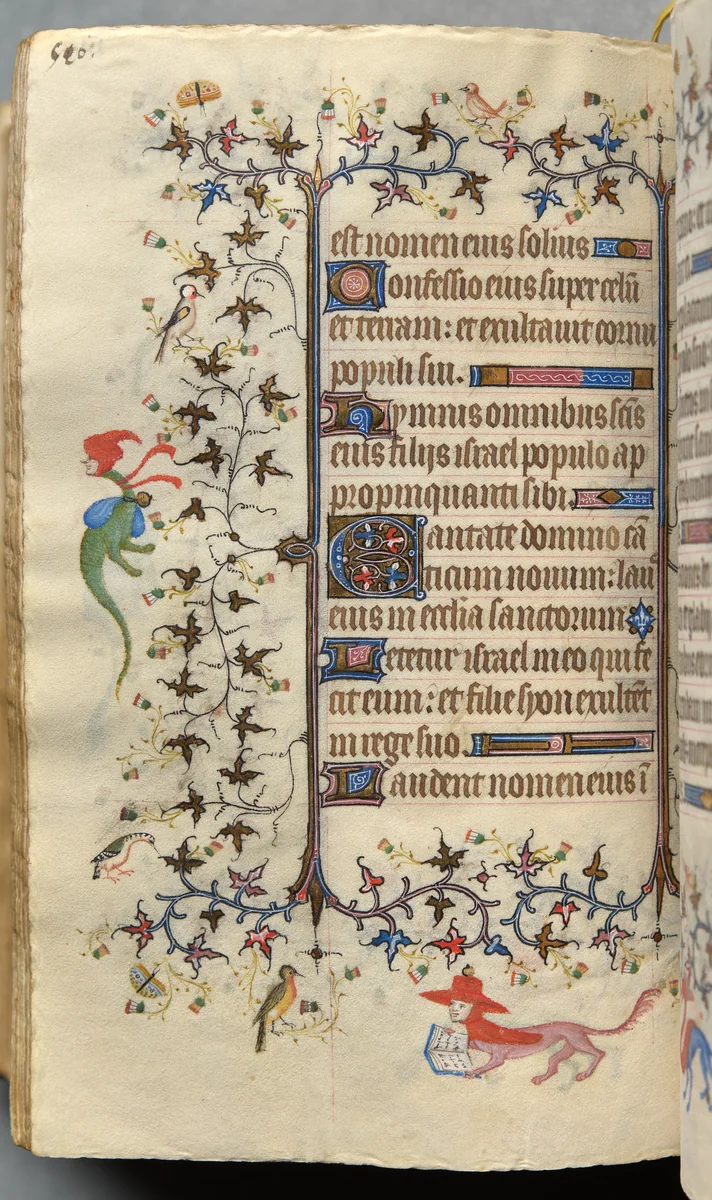 est nomen eius solius
Confessio eius super celū
et terram: et exultauit cornu
populi sui.
Hymnus omnibus scīs
eius filijs israel populo ap
propinquanti sibi.
Cantate domino cā
ticum nouum: lauˢ
eius in ecclīa sanctorum
Letetur israel in eo qui fe
cit eum: et filie syon exultēt
in rege suo.
Laudent nomen eius ī